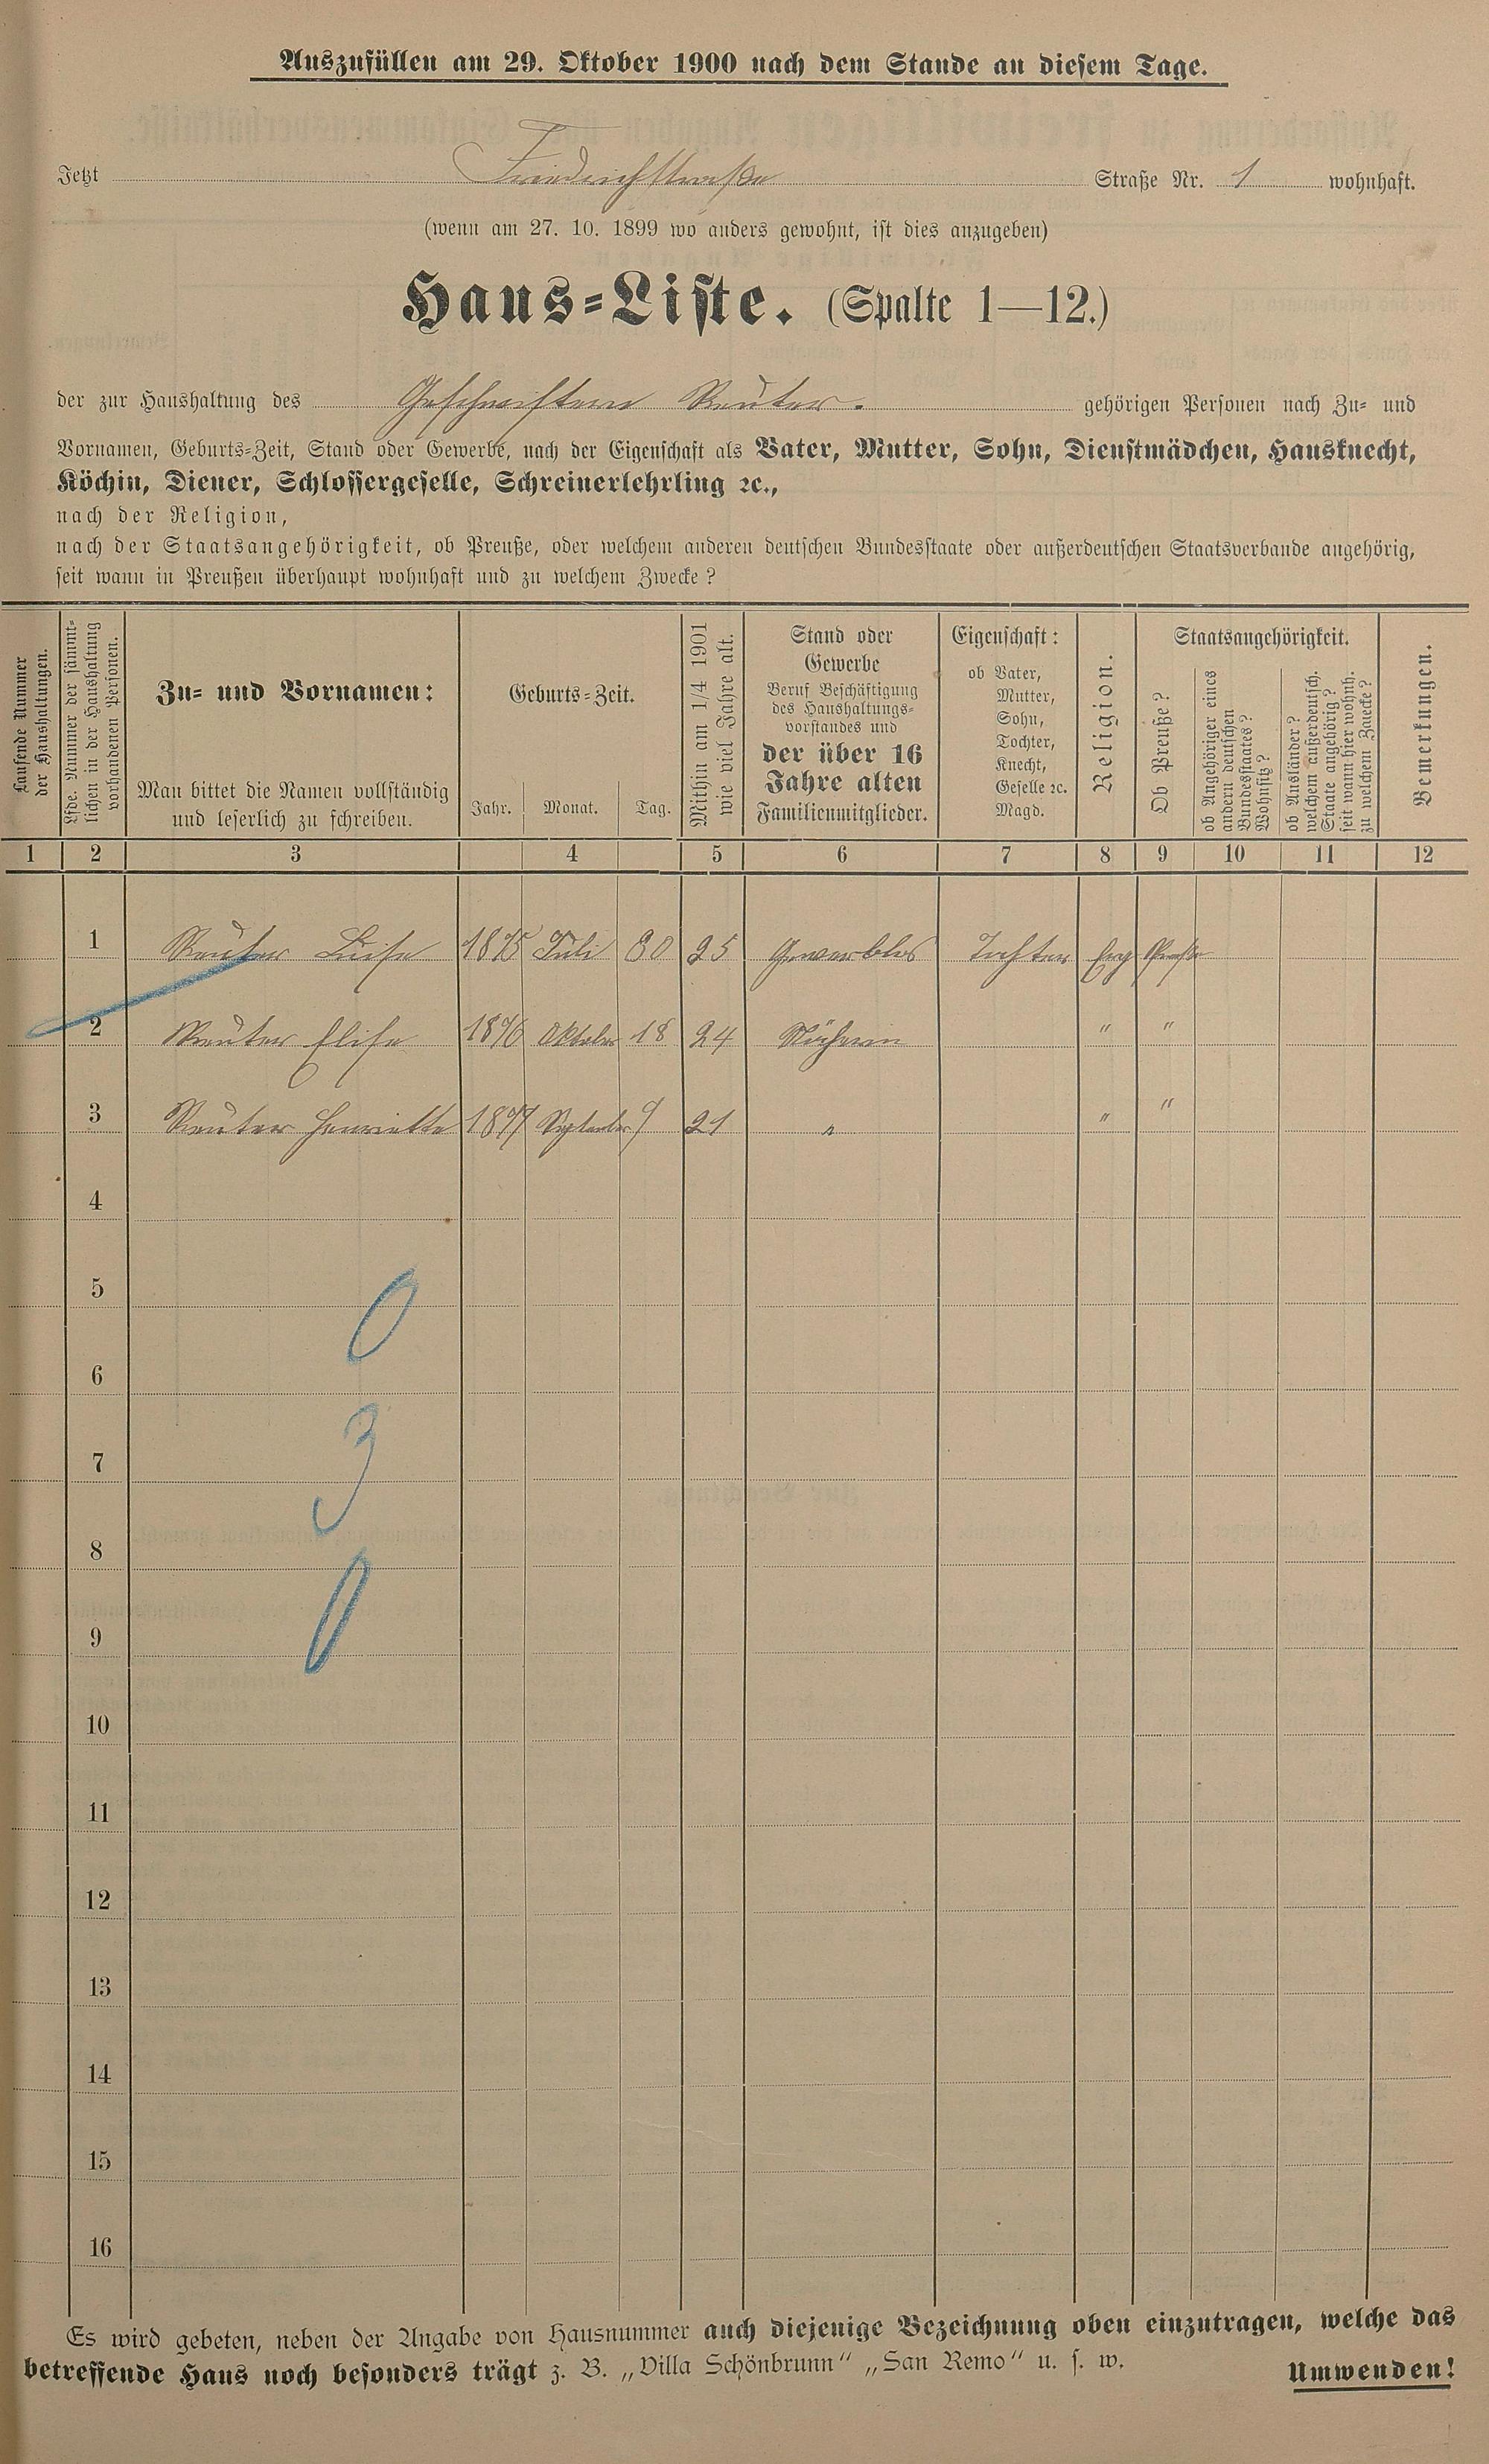 Auszufüllen am 29. Oktober 1900 nach dem Stande an diesem Tage.
Jetzt Friedrichstraße Straße Nr. 1 wohnhaft.
(wenn am 27. 10. 1899 wo anders gewohnt, ist dies anzugeben)
Haus-Liste. (Spalte 1—12.)
der zur Haushaltung des Geschwistern Reuter. gehörigen Personen nach Zu- und
Vornamen, Geburts-Zeit, Stand oder Gewerbe, nach der Eigenschaft als Vater, Mutter, Sohn, Dienstmädchen, Hausknecht,
Köchin, Diener, Schlossergeselle, Schreinerlehrling ꝛc.,
nach der Religion,
nach der Staatsangehörigkeit, ob Preuße, oder welchem anderen deutschen Bundesstaate oder außerdeutschen Staatsverbande angehörig,
seit wann in Preußen überhaupt wohnhaft und zu welchem Zwecke?
Laufende Nummer
der Haushaltungen.
Lfde. Nummer der sämmt-
lichen in der Haushaltung
vorhandenen Personen.
Zu- und Vornamen:
Man bittet die Namen vollständig
und leserlich zu schreiben.
Geburts-Zeit.
Jahr. Monat. Tag.
Mithin am 1/4 1901
wie viel Jahre alt.
Stand oder
Gewerbe
Beruf Beschäftigung
des Haushaltungs-
vorstandes und
der über 16
Jahre alten
Familienmitglieder.
Eigenschaft:
ob Vater,
Mutter,
Sohn,
Tochter,
Knecht,
Geselle ꝛc.
Magd.
Religion.
Staatsangehörigkeit.
Ob Preuße?
ob Angehöriger eines
andern deutschen
Bundesstaates?
Wohnsitz?
ob Ausländer?
welchem außerdeutsch.
Staate angehörig?
seit wann hier wohnh.
zu welchem Zwecke?
Bemerkungen.
1 2 3 4 5 6 7 8 9 10 11 12
1 Reuter Luise 1875 Juli 30 25 Gewerblos Tochter Evg Preuße
2 Reuter Elise 1876 Oktober 18 24 Näherin " "
3 Reuter Henriette 1877 September 9 21 " " "
4
5
0
6
7
3
8
9
0
10
11
12
13
14
15
16
Es wird gebeten, neben der Angabe von Hausnummer auch diejenige Bezeichnung oben einzutragen, welche das
betreffende Haus noch besonders trägt z. B. „Villa Schönbrunn" „San Remo" u. s. w.
Umwenden!